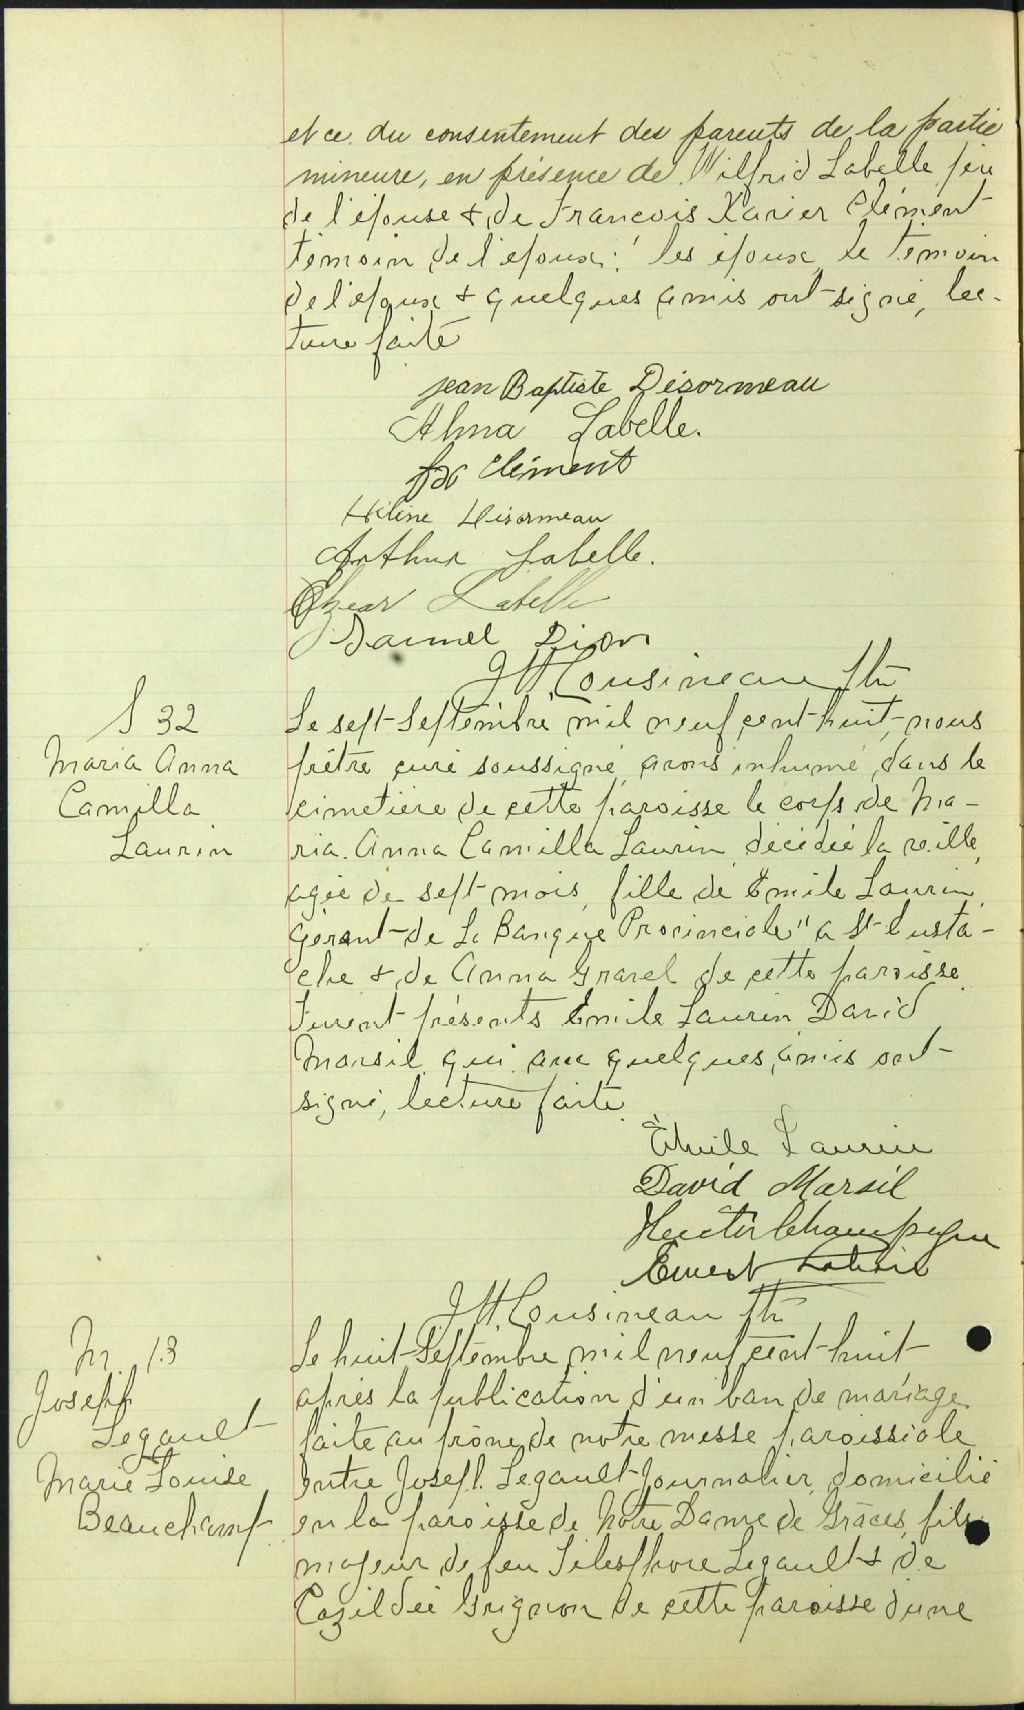 et ce du consentement des parents de la partie
mineure, en présence de Wilfrid Labelle père
de l'épouse & de Francois Xavier Clément
témoin de l'époux: les époux, le témoin
de l'époux & quelques amis ont signé, lec-
ture faite
Jean Baptiste Désormeau
Alma Labelle.
fx Clément
Hélène Désormeau
Arthur Labelle.
Labelle
Daniel Dion
J H Cousineau ptr
S 32
Maria Anna
Camilla
Laurin
Le sept Septembre mil neuf cent huit, nous
prêtre curé soussigné avons inhumé dans le
cimetière de cette paroisse le corps de Ma-
ria Anna Camilla Laurin décédée la veille,
agée de sept mois, fille de Emile Laurin,
gérant de La Banque Provinciale" a St Eusta-
che & de Anna Gravel de cette paroisse.
Furent présents Emile Laurin David
Marsil qui avec quelques amis ont
signé, lecture faite
Emile Laurin
David Marsil
Hector Champagne
Ernest
J.H. Cousineau ptr
M 13
Joseph
Legault
Marie Louise
Beauchamp
Le huit Septembre mil neuf cent huit
après la publication d'un ban de mariage
faite au prône de notre messe paroissiale
entre Joseph Legault Journalier, domicilié
en la paroisse de Notre Dame de Grâces, fils
majeur de feu Télesphore Legault & de
Cazildée Grignon de cette paroisse d'une